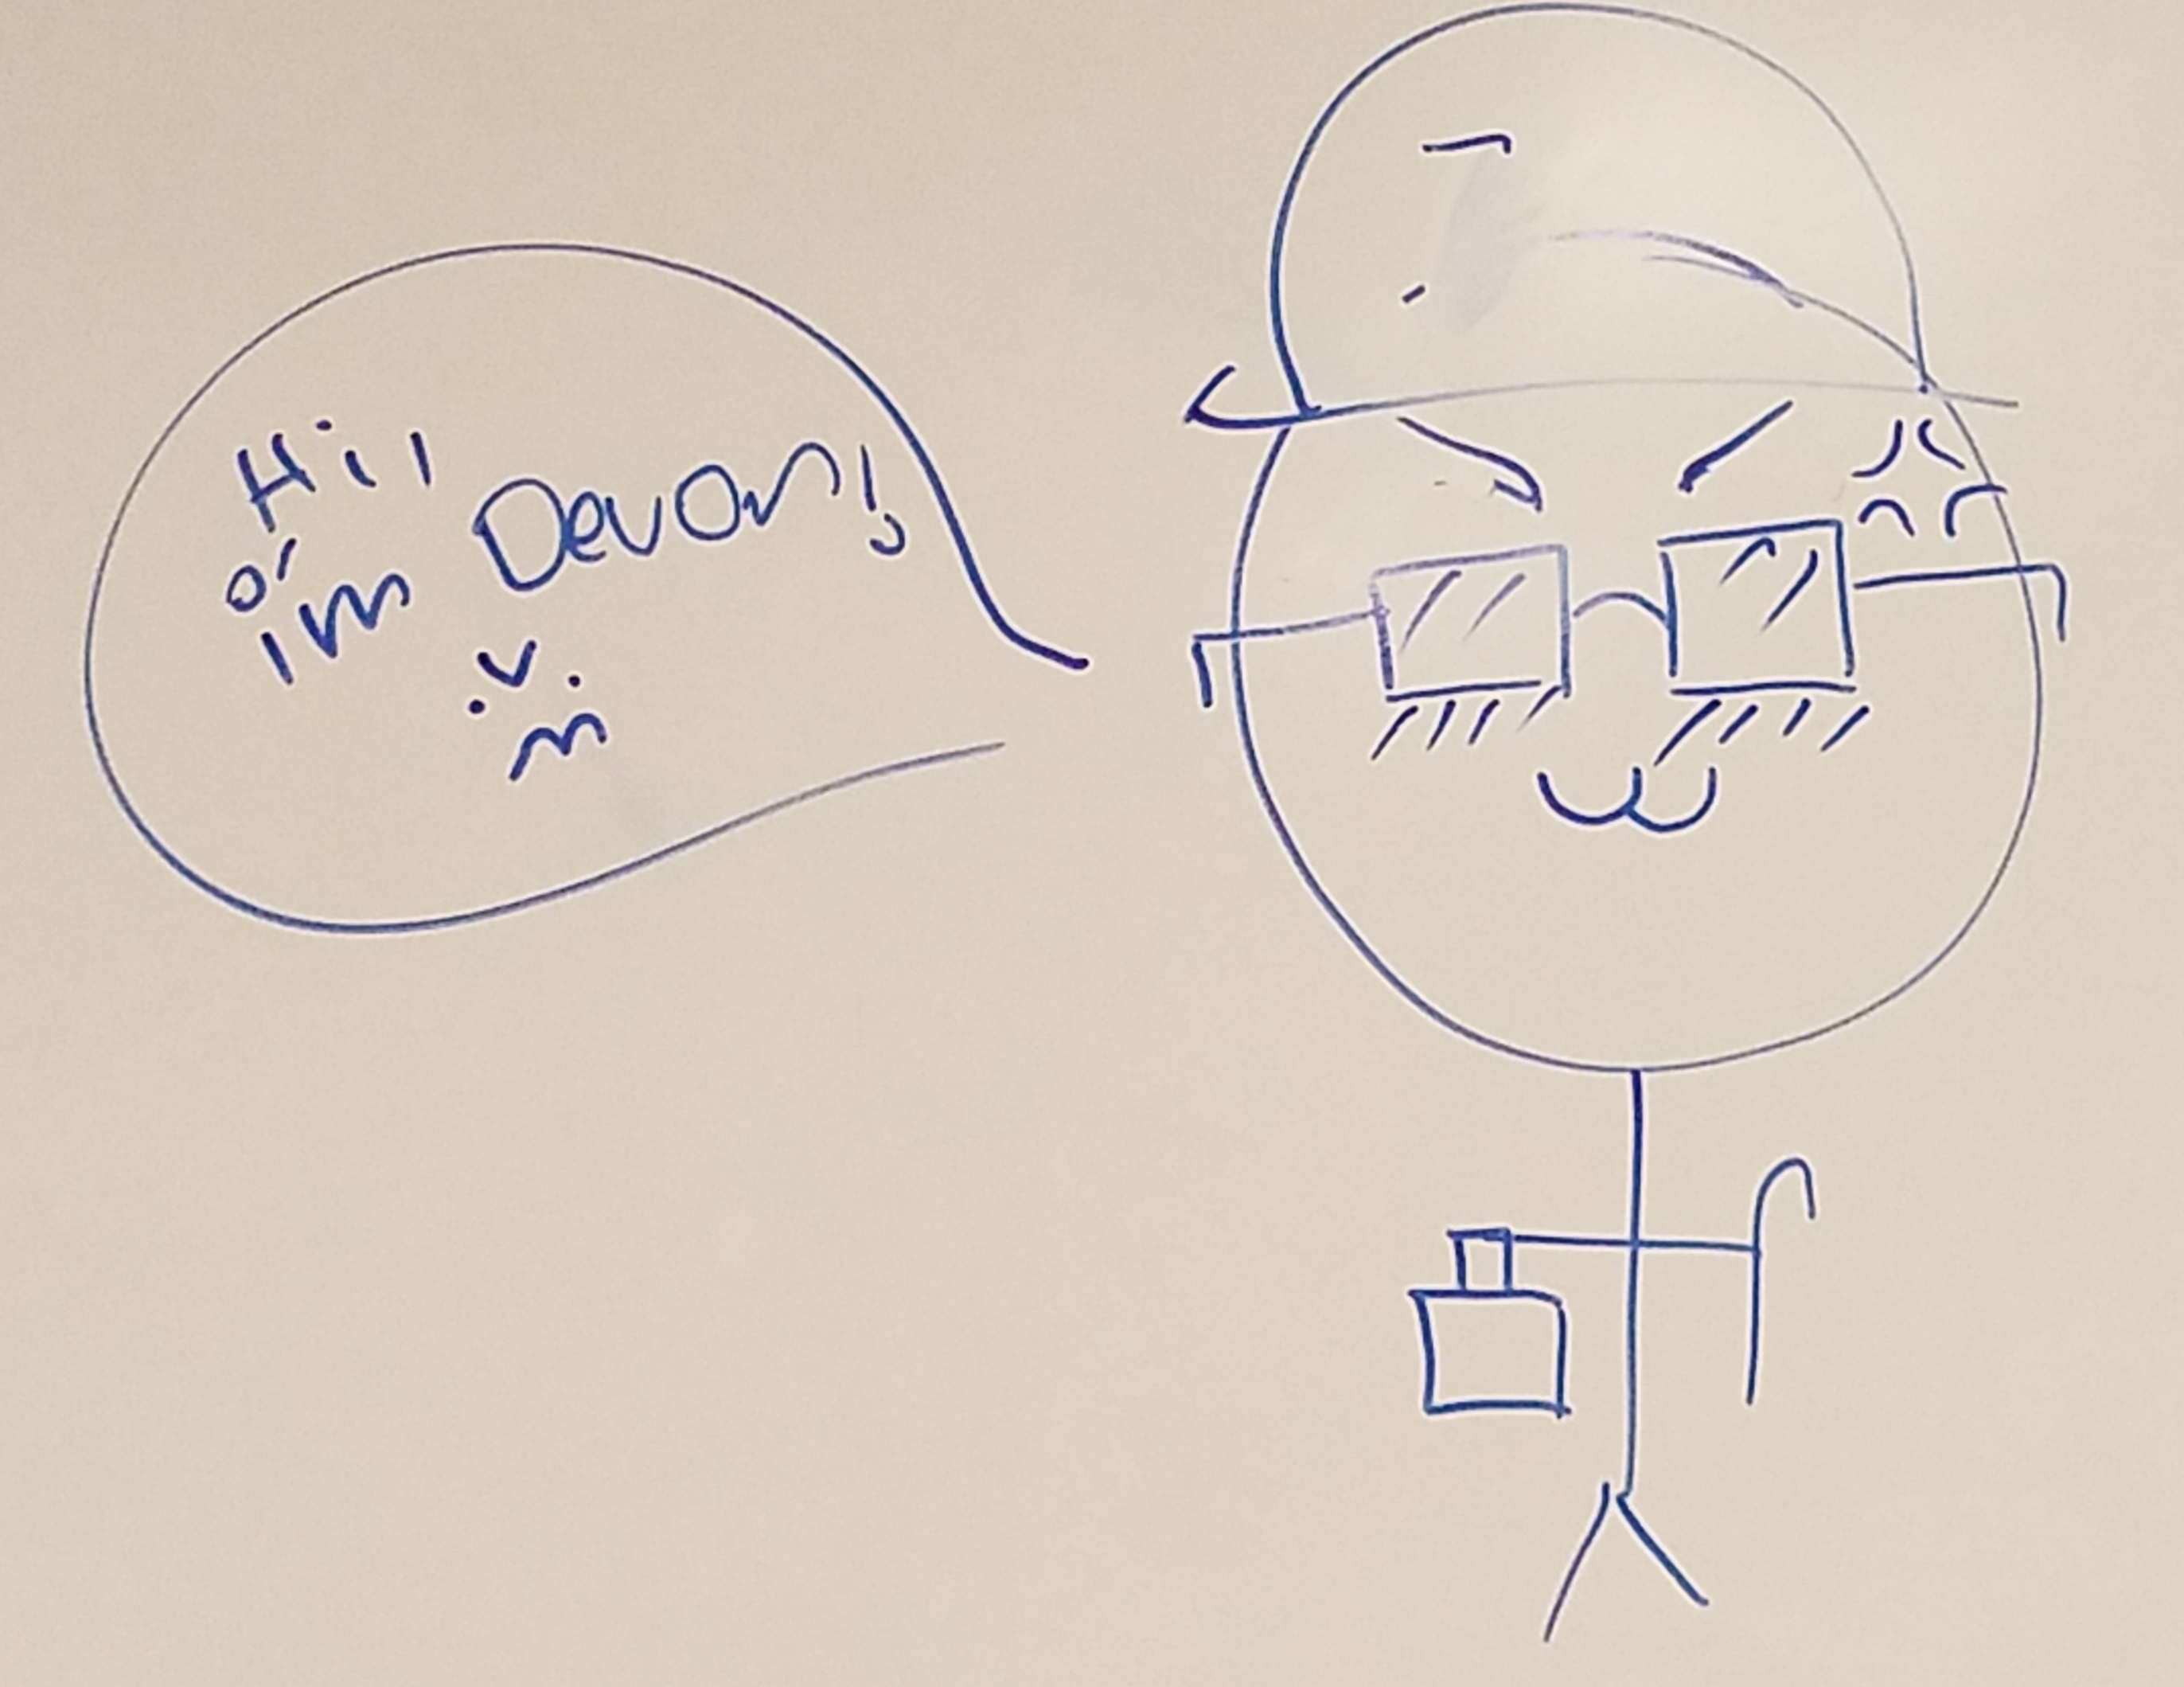 Hi!
i'm Devon!